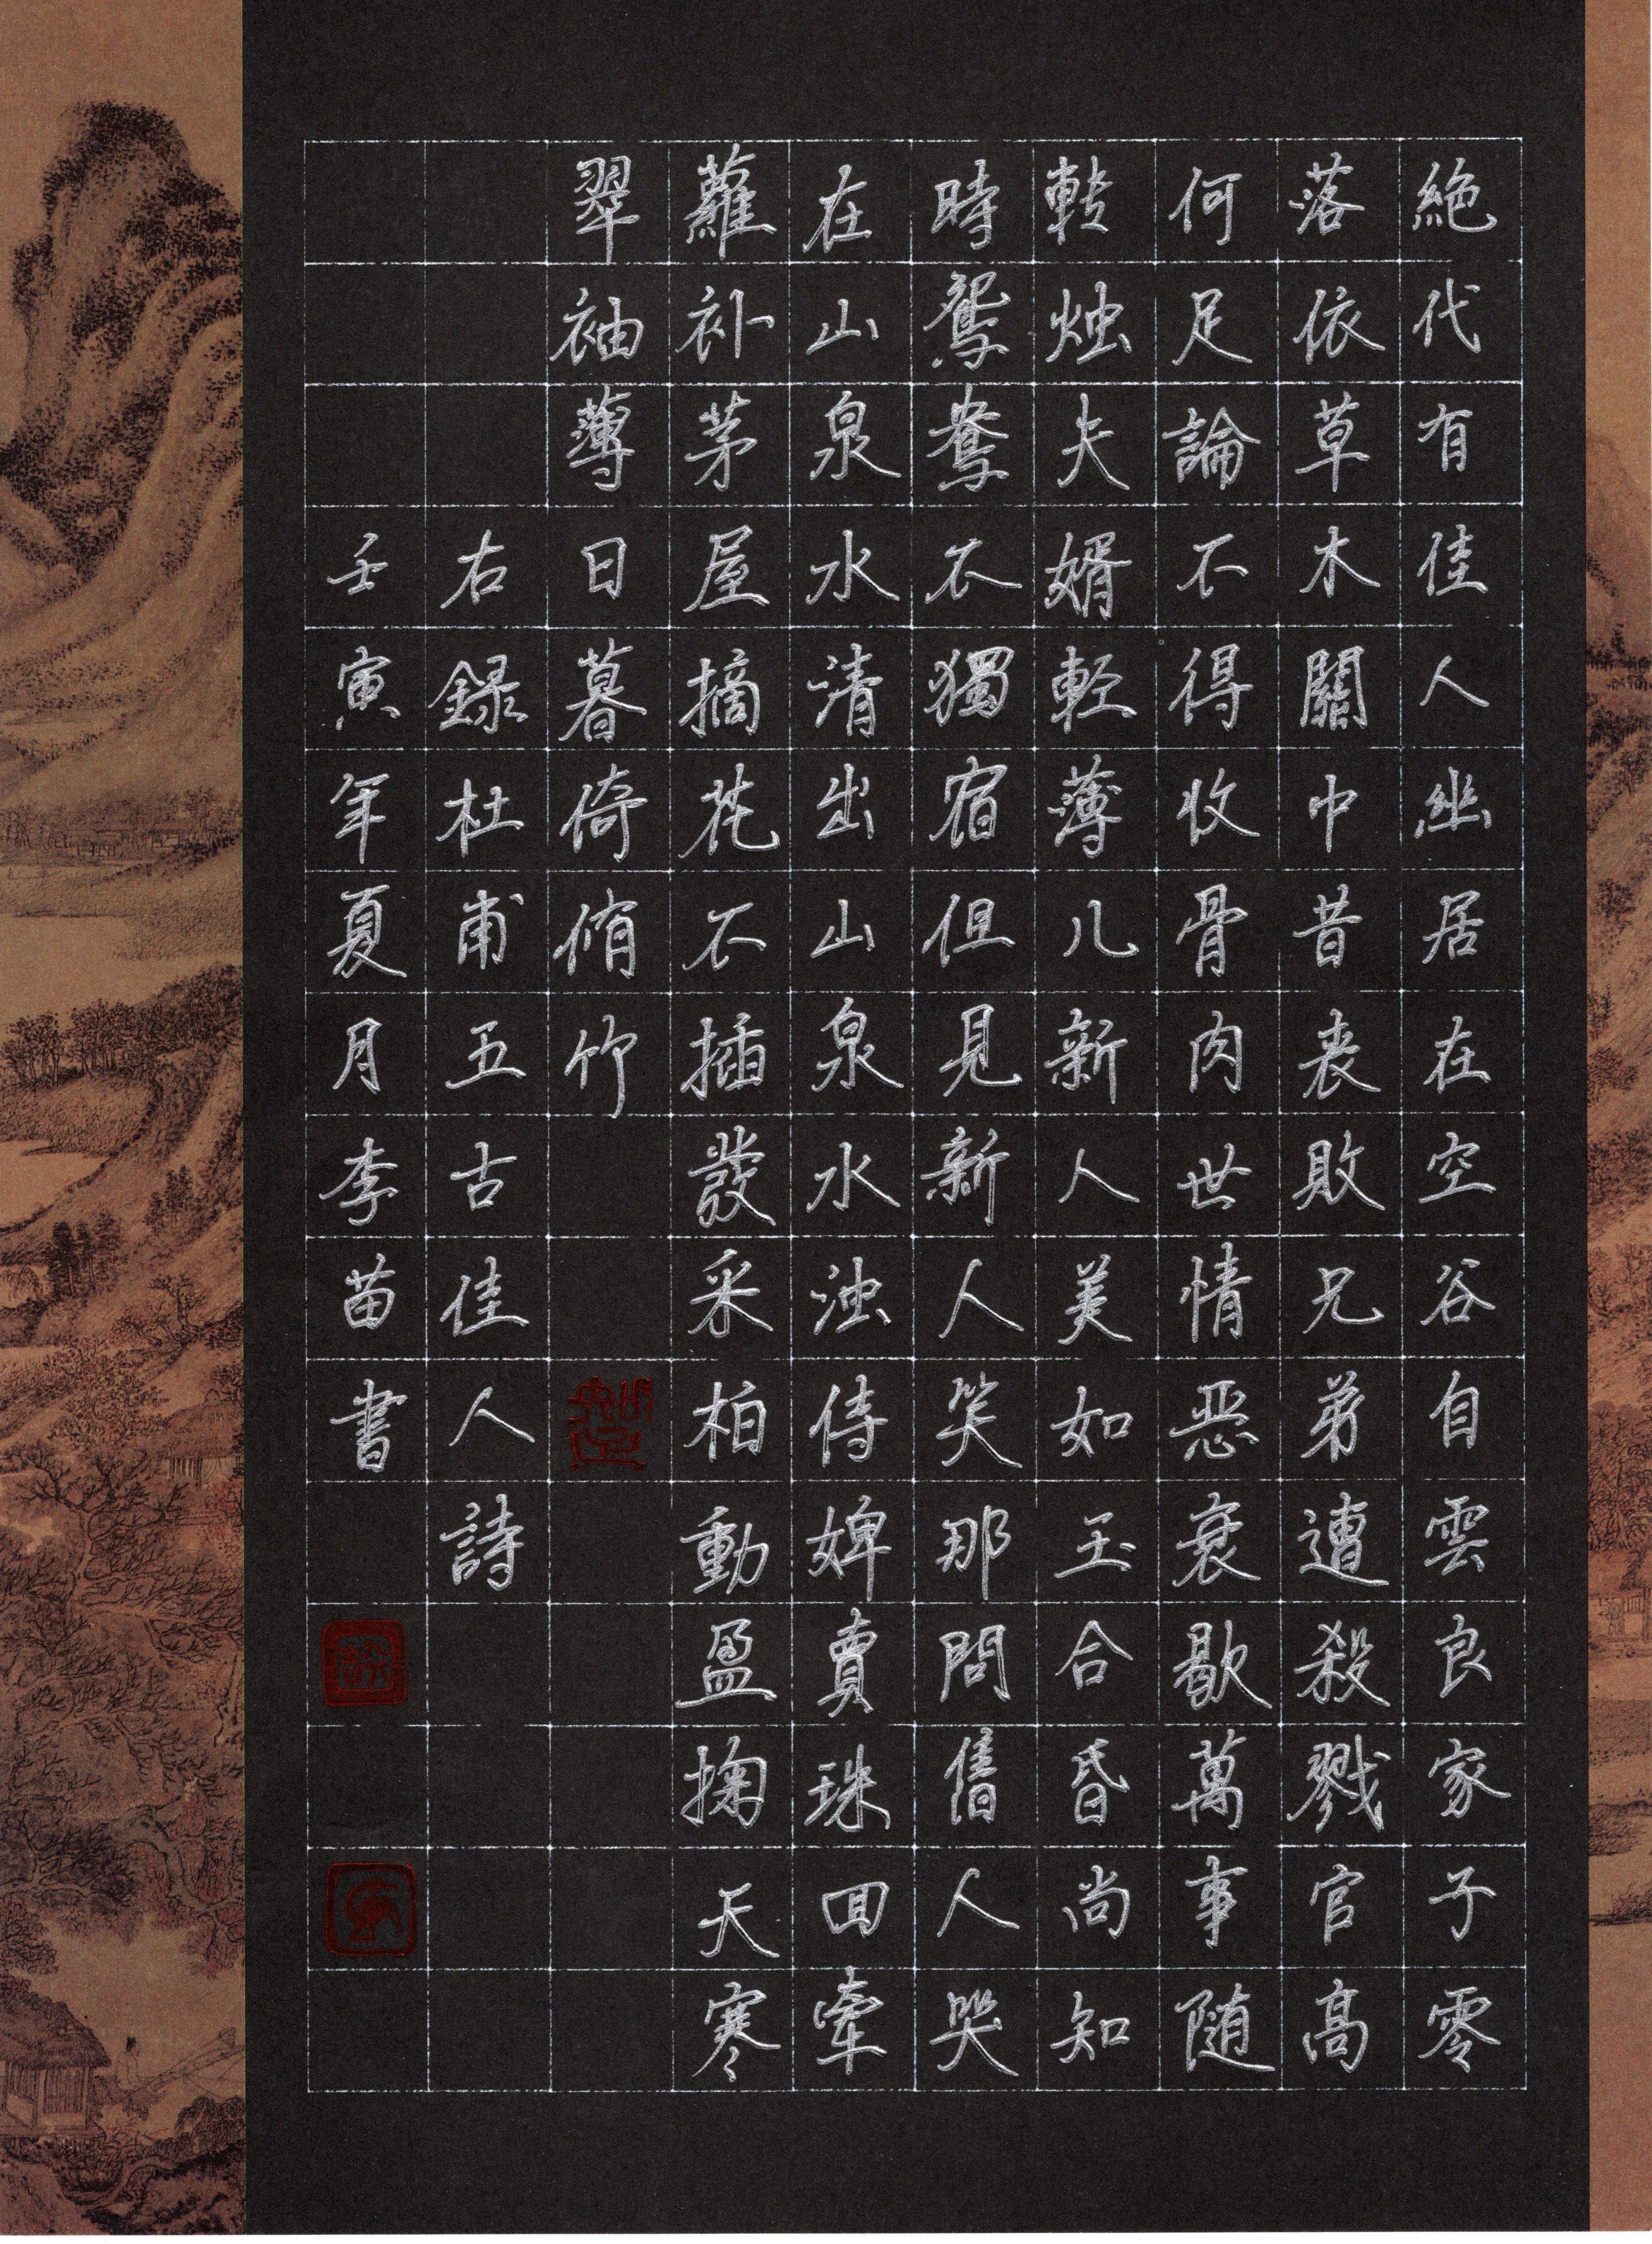 絶代有佳人幽居在空谷自雲良家子零
落依草木關中昔丧敗兄弟遭殺戮官高
何足論不得收骨肉世情恶衰歇萬事随
轉烛夫婿軽薄儿新人美如玉合昏尚知
時鴛鴦不獨宿但見新人笑那問舊人哭
在山泉水清出山泉水浊侍婢賣珠回牽
蘿补茅屋摘花不插發采柏動盈掬天寒
翠袖薄日暮倚脩竹
右録杜甫五古佳人詩
壬寅年夏月李苗書